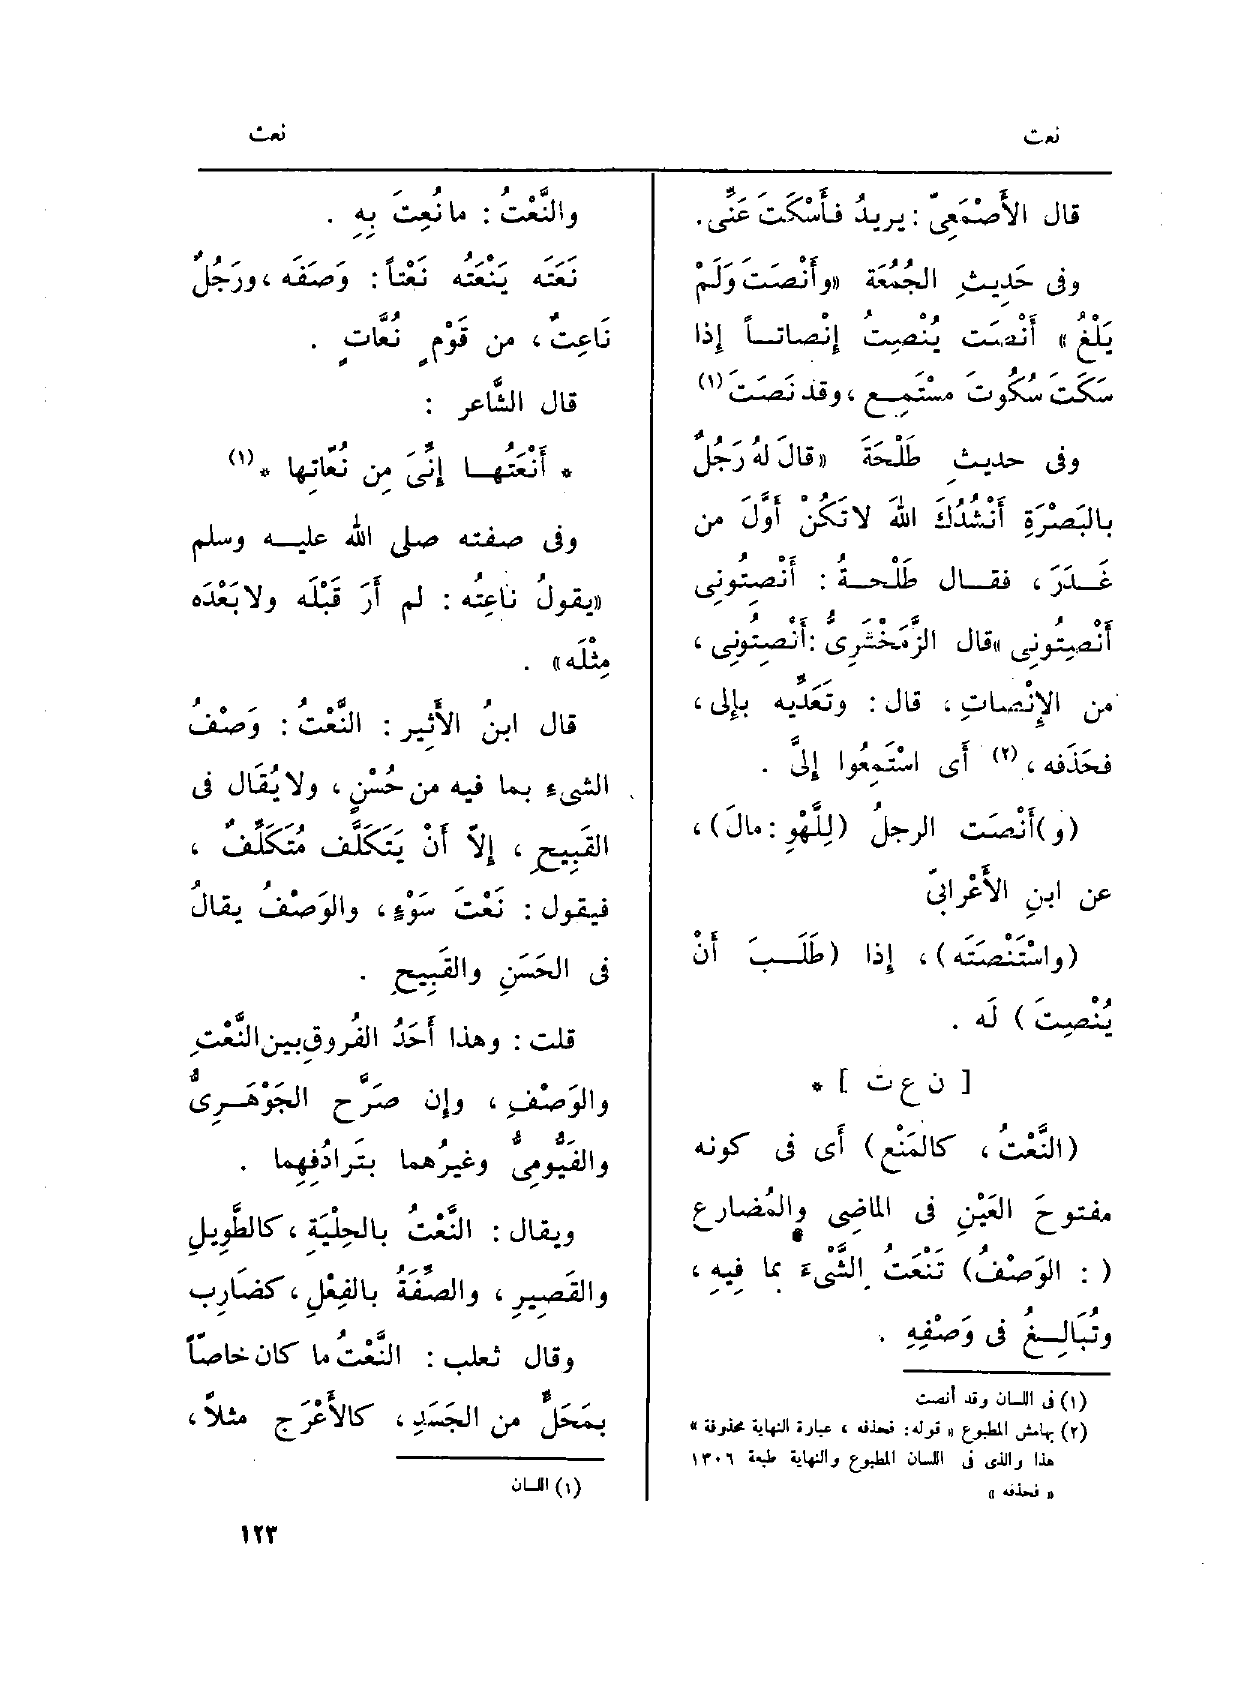 نعت
نعت
قال الأَصْمَعِىّ : يريدُ فأَسْكَتَ عَنِّى.
وفى حَدِيثِ الجُمُعَة «وأَنْصَتَ وَلَمْ
يَلْغُ» أَنْصَت يُنْصِتُ إِنْصاتــاً إذا
سَكَتَ سُكُوتَ مسْتَمِـع ، وقد نَصَتَ (١)
وفى حديثِ طَلْحَةَ «قالَ لهُ رَجُلٌ
بالبَصْرَةِ أَنْشُدُكَ اللهَ لا تَكُنْ أَوَّلَ من
غَــدَرَ ، فقــال طَلْحــةُ : أَنْصِتُونِى
أَنْصِتُونِى» قال الزَّمَخْشَرِىُّ : أَنْصِتُونِى ،
من الإِنْصاتِ ، قال : وتَعَدِّيه بإِلى ،
فحَذَفه ، (٢) أَى اسْتَمِعُوا إِلىَّ .
(و) أَنْصَت الرجلُ (لِلَّهْوِ : مالَ) ،
عن ابنِ الأَعْرابىّ
(واسْتَنْصَتَه) ، إذا (طَلَــبَ أَنْ
يُنْصِتَ ) لَه .
[ ن ع ت ] *
(النَّعْتُ ، كالمَنْع) أَى فى كونه
مفتوحَ العَيْنِ فى الماضِى والمُضارع
( : الوَصْفُ) تَنْعَتُ الشَّىْءَ بما فِيهِ ،
وتُبَالِــغُ فى وَصْفِهِ .
(١) فى اللسان وقد أنصت
(٢) بهامش المطبوع « قوله : فحذفه ، عبارة النهاية محذوفة »
هذا والذى فى اللسان المطبوع والنهاية طبعة ١٣٠٦
« فحذفه »
والنَّعْتُ : ما نُعِتَ بِهِ .
نَعَتَه يَنْعَتُه نَعْتاً : وَصَفَه ، ورَجُلٌ
نَاعِتٌ ، من قَوْمٍ نُعَّاتٍ .
قال الشَّاعر :
* أَنْعَتُهــا إِنِّىَ مِن نُعّاتِها * (١)
وفى صفته صلى الله عليــه وسلم
«يقولُ ناعِتُه : لم أَرَ قَبْلَه ولا بَعْدَه
مِثْلَه» .
قال ابنُ الأَثِير : النَّعْتُ : وَصْفُ
الشىءِ بما فيه من حُسْنٍ ، ولا يُقَال فى
القَبِيحِ ، إِلاّ أَنْ يَتَكَلَّف مُتَكَلِّفٌ ،
فيقول : نَعْتَ سَوْءٍ ، والوَصْفُ يقالُ
فى الحَسَنِ والقَبِيحِ .
قلت : وهذا أَحَدُ الفُروقِ بين النَّعْتِ
والوَصْفِ ، وإن صَرَّح الجَوْهَــرِىُّ
والفَيُّومِىُّ وغيرُهما بتَرادُفِهِما .
ويقال : النَّعْتُ بالحِلْيَةِ ، كالطَّوِيلِ
والقَصِيرِ ، والصِّفَةُ بالفِعْلِ ، كضَارِب
وقال ثعلب : النَّعْتُ ما كان خاصّاً
بمَحَلٍّ من الجَسَدِ ، كالأَعْرَج مثلاً ،
(١) اللسان
١٢٣